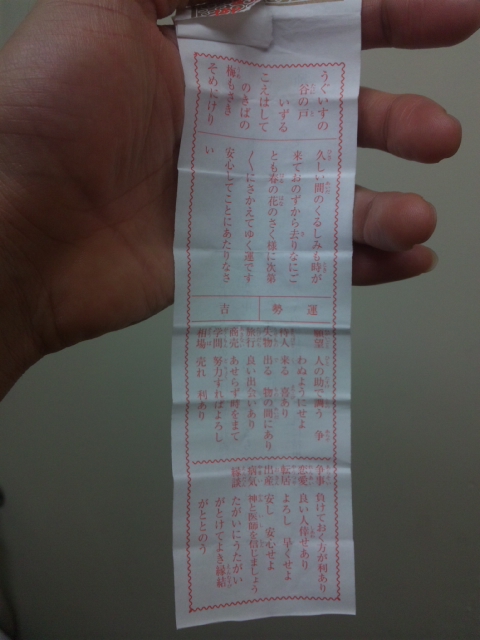 うぐいすの
谷の戸
いずる
こえはして
のきばの
梅もさき
そめにけり
久しい間のくるしみも時が
来ておのずから去りなにご
とも春の花のさく様に次第
〱にさかえてゆく運です
安心してことにあたりなさ
い
運勢
吉
願望 人の助で調う 争
わぬようにせよ
待人 来る 喜あり
失物 出る 物の間にあり
旅行 良い出会いあり
商売 あせらず時をまて
学問 努力すればよろし
相場 売れ 利あり
争事 負けておく方が利あり
恋愛 良い人倖せあり
転居 よろし 早くせよ
出産 安し 安心せよ
病気 神と医師を信じましょう
縁談 たがいにうたがい
がとけてよき縁結
がととのう